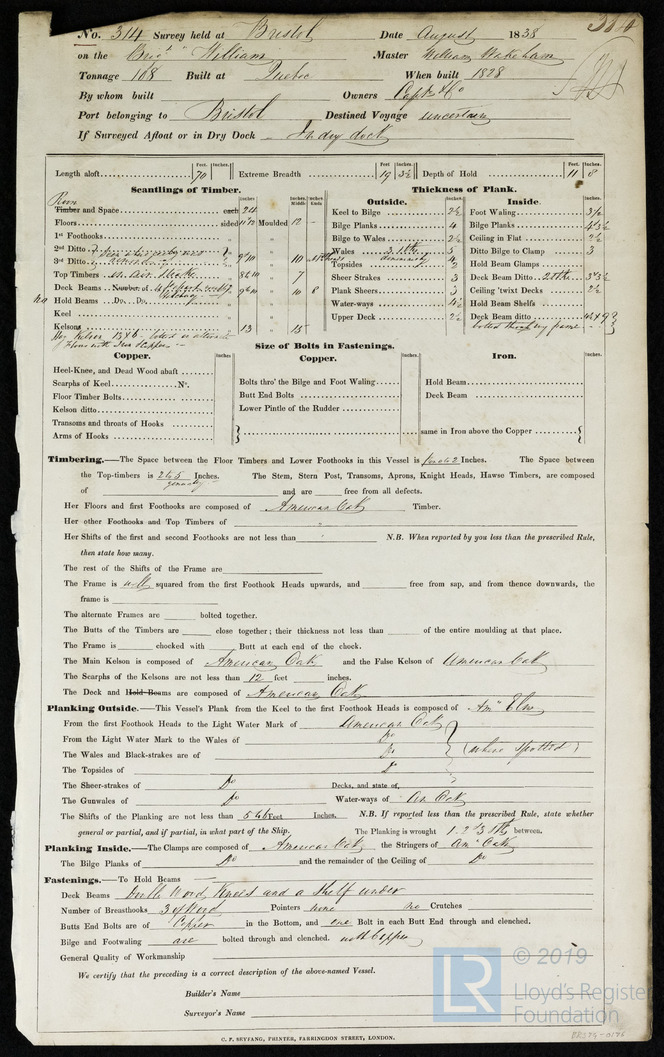 No. 314 Survey held at Bristol Date August 1838
on the Brigt "William Master William Wakeham
Tonnage 168 Built at Quebec When built 1828
By whom built Owners Capt & Co
Port belonging to Bristol Destined Voyage uncertain
If Surveyed Afloat or in Dry Dock In dry dock
Length aloft 70 Extreme Breadth 19 3½ Depth of Hold 11 8
Feet. Inches. Feet. Inches. Feet. Inches.
Scantlings of Timber.
Room
Timber and Space each 24
Floors sided Moulded 12
1st Foothooks
2nd Ditto
3rd Ditto 10
Top Timbers 7
Deck Beams Number of 10 8
no Hold Beams Do. Do. of
Keel
Kelsons 13 15
Thickness of Plank.
Outside.
Keel to Bilge 2½
Bilge Planks 4
Bilge to Wales 2½
Wales 3
Topsides
Sheer Strakes 3
Plank Sheers 3
Water-ways 4½
Upper Deck 2½
Inside.
Foot Waling
Bilge Planks
Ceiling in Flat 2½
Ditto Bilge to Clamp 3
Hold Beam Clamps
Deck Beam Ditto
Ceiling 'twixt Decks 2½
Hold Beam Shelfs
Deck Beam ditto
Size of Bolts in Fastenings.
Copper. Inches.
Heel-Knee, and Dead Wood abaft
Scarphs of Keel No.
Floor Timber Bolts
Kelson ditto
Transoms and throats of Hooks
Arms of Hooks
Copper. Inches.
Bolts thro' the Bilge and Foot Waling
Butt End Bolts
Lower Pintle of the Rudder
Iron. Inches.
Hold Beam
Deck Beam
same in Iron above the Copper
Timbering.—The Space between the Floor Timbers and Lower Foothooks in this Vessel is Inches. The Space between
the Top-timbers is 2 to 5 Inches. The Stem, Stern Post, Transoms, Aprons, Knight Heads, Hawse Timbers, are composed
generally
of and are free from all defects.
Her Floors and first Foothooks are composed of American Oak Timber.
Her other Foothooks and Top Timbers of "
Her Shifts of the first and second Foothooks are not less than N.B. When reported by you less than the prescribed Rule,
then state how many.
The rest of the Shifts of the Frame are
The Frame is well squared from the first Foothook Heads upwards, and free from sap, and from thence downwards, the
frame is
The alternate Frames are bolted together.
The Butts of the Timbers are close together; their thickness not less than of the entire moulding at that place.
The Frame is chocked with Butt at each end of the chock.
The Main Kelson is composed of American Oak and the False Kelson of American Oak
The Scarphs of the Kelsons are not less than 12 feet inches.
The Deck and Hold Beams are composed of American Oak
Planking Outside.—This Vessel's Plank from the Keel to the first Foothook Heads is composed of Amn Elm
From the first Foothook Heads to the Light Water Mark of American Oak
From the Light Water Mark to the Wales of Do
The Wales and Black-strakes are of Do (where spotted)
The Topsides of Do
The Sheer-strakes of Do Decks, and state of,
The Gunwales of Do Water-ways of Am Oak
The Shifts of the Planking are not less than 5 & 6 Feet Inches. N.B. If reported less than the prescribed Rule, state whether
general or partial, and if partial, in what part of the Ship. The Planking is wrought 1. 2 & 3 between.
Planking Inside.—The Clamps are composed of American Oak the Stringers of Amn Oak
The Bilge Planks of Do and the remainder of the Ceiling of Do
Fastenings.—To Hold Beams
Deck Beams Double Wood Knees and a Shelf under
Number of Breasthooks 3 of Wood Pointers none no Crutches
Butts End Bolts are of Copper in the Bottom, and one Bolt in each Butt End through and clenched.
Bilge and Footwaling are bolted through and clenched. with Copper
General Quality of Workmanship
We certify that the preceding is a correct description of the above-named Vessel.
Builder's Name
Surveyor's Name
C. F. SEYFANG, PRINTER, FARRINGDON STREET, LONDON.
LR © 2019
Lloyd's Register
Foundation